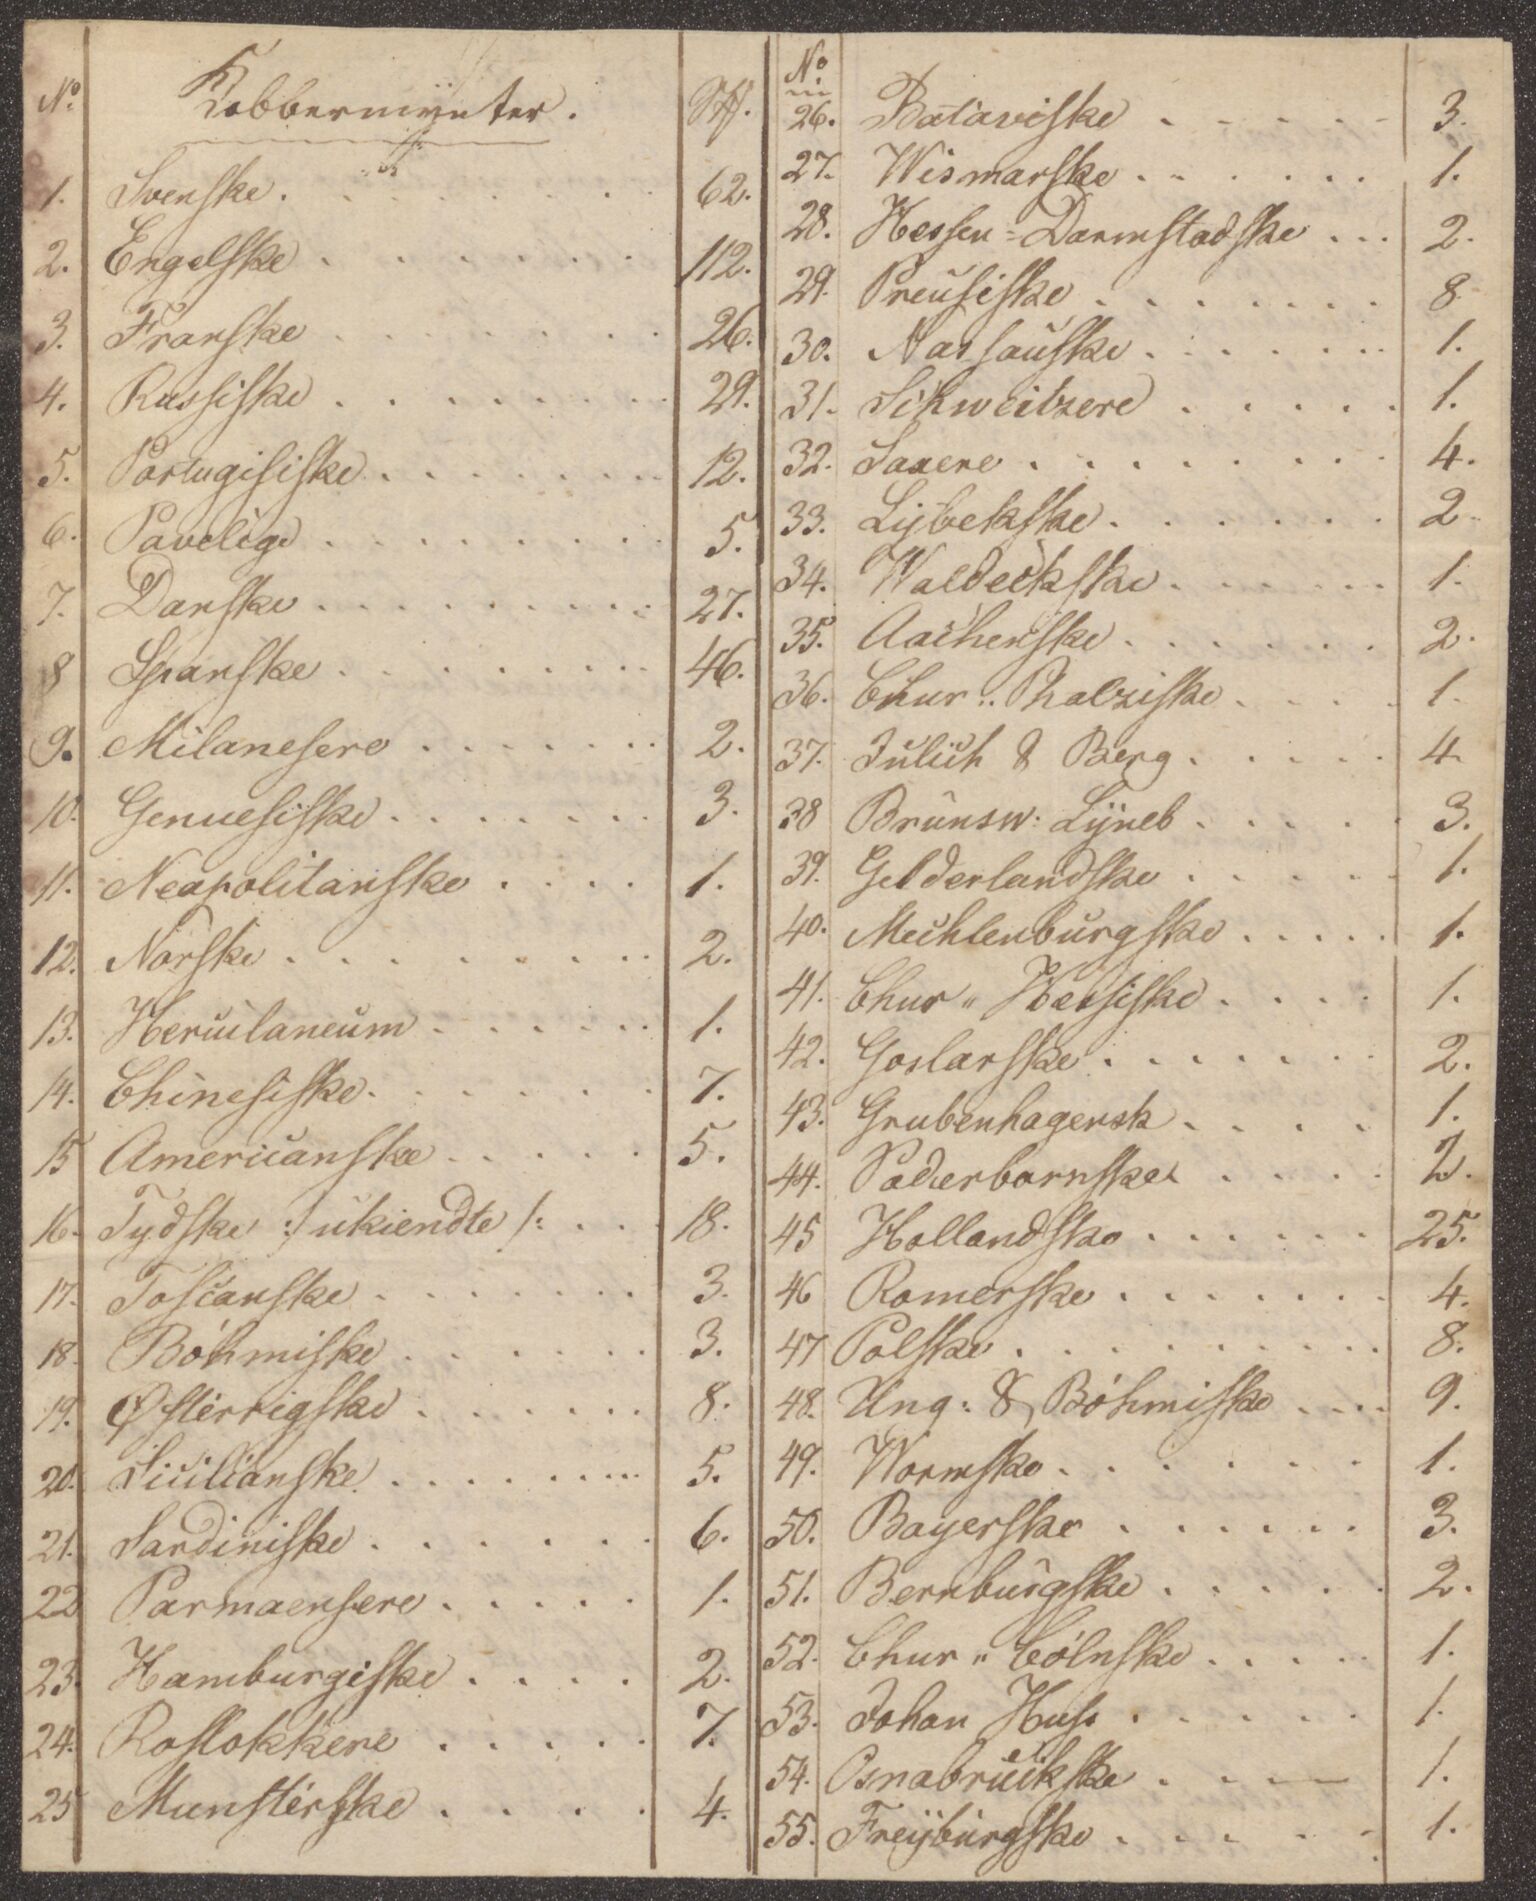 No. Kobbermynter. Stk.
1. Svenske. 62.
2. Engelske 112.
3. Franske 26.
4. Russiske 29.
5. Portugisiske. 12.
6. Pavelige 5.
7. Danske 27.
8 Spanske 46.
9. Milanesere 2.
10. Genuesiske. 3.
11. Neapolitanske 1.
12. Norske 2.
13. Herculaneum 1.
14. Chinesiske. 7.
15 Americanske 5.
16. Tydske :/ ukiendte /: 18.
17. Toscanske 3.
18. Böhmiske 3.
19. Østerrigske 8.
20. Sicilianske. 5.
21. Sardiniske 6.
22 Parmaensere 1.
23. Hamburgiske 2.
24. Rostokkere 7.
25 Munsterske 4.
No
26. Bataviske 3.
27. Wismarske 1.
28. Hessen=Darmstadske 2.
29. Preusiske 8
30. Nassauske 1.
31. Schweitzere 1.
32. Saxere 4.
33. Lybekske 2
34. Waldeckske 1.
35. Aachenske 2.
36. Chur.. Phalziske 1.
37. Julich & Berg 4.
38 Brunsw: Lyneb 3.
39. Gelderlandske 1.
40. Mechlenburgske 1.
41. Chur " Hessiske 1.
42. Goslarske 2.
43. Grubenhagensk 1.
44. Paderbornske 2.
45 Hollandske 25.
46 Romerske 4.
47 Polske 8.
48. Ung: & Böhmiske 9.
49. Wormske 1.
50. Bayerske 3.
51. Bernburgske 2.
52. Chur " Cölnske 1.
53. Johan Huss 1.
54. Osnabruckske 1.
55. Freyburgske 1.